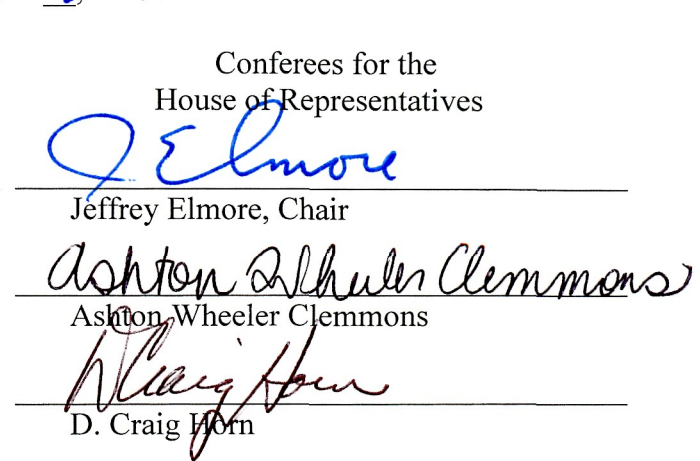 Conferees for the
House of Representatives
J. Elmore
Jeffrey Elmore, Chair
Ashton Wheeler Clemmons
Ashton Wheeler Clemmons
D Craig Horn
D. Craig Horn